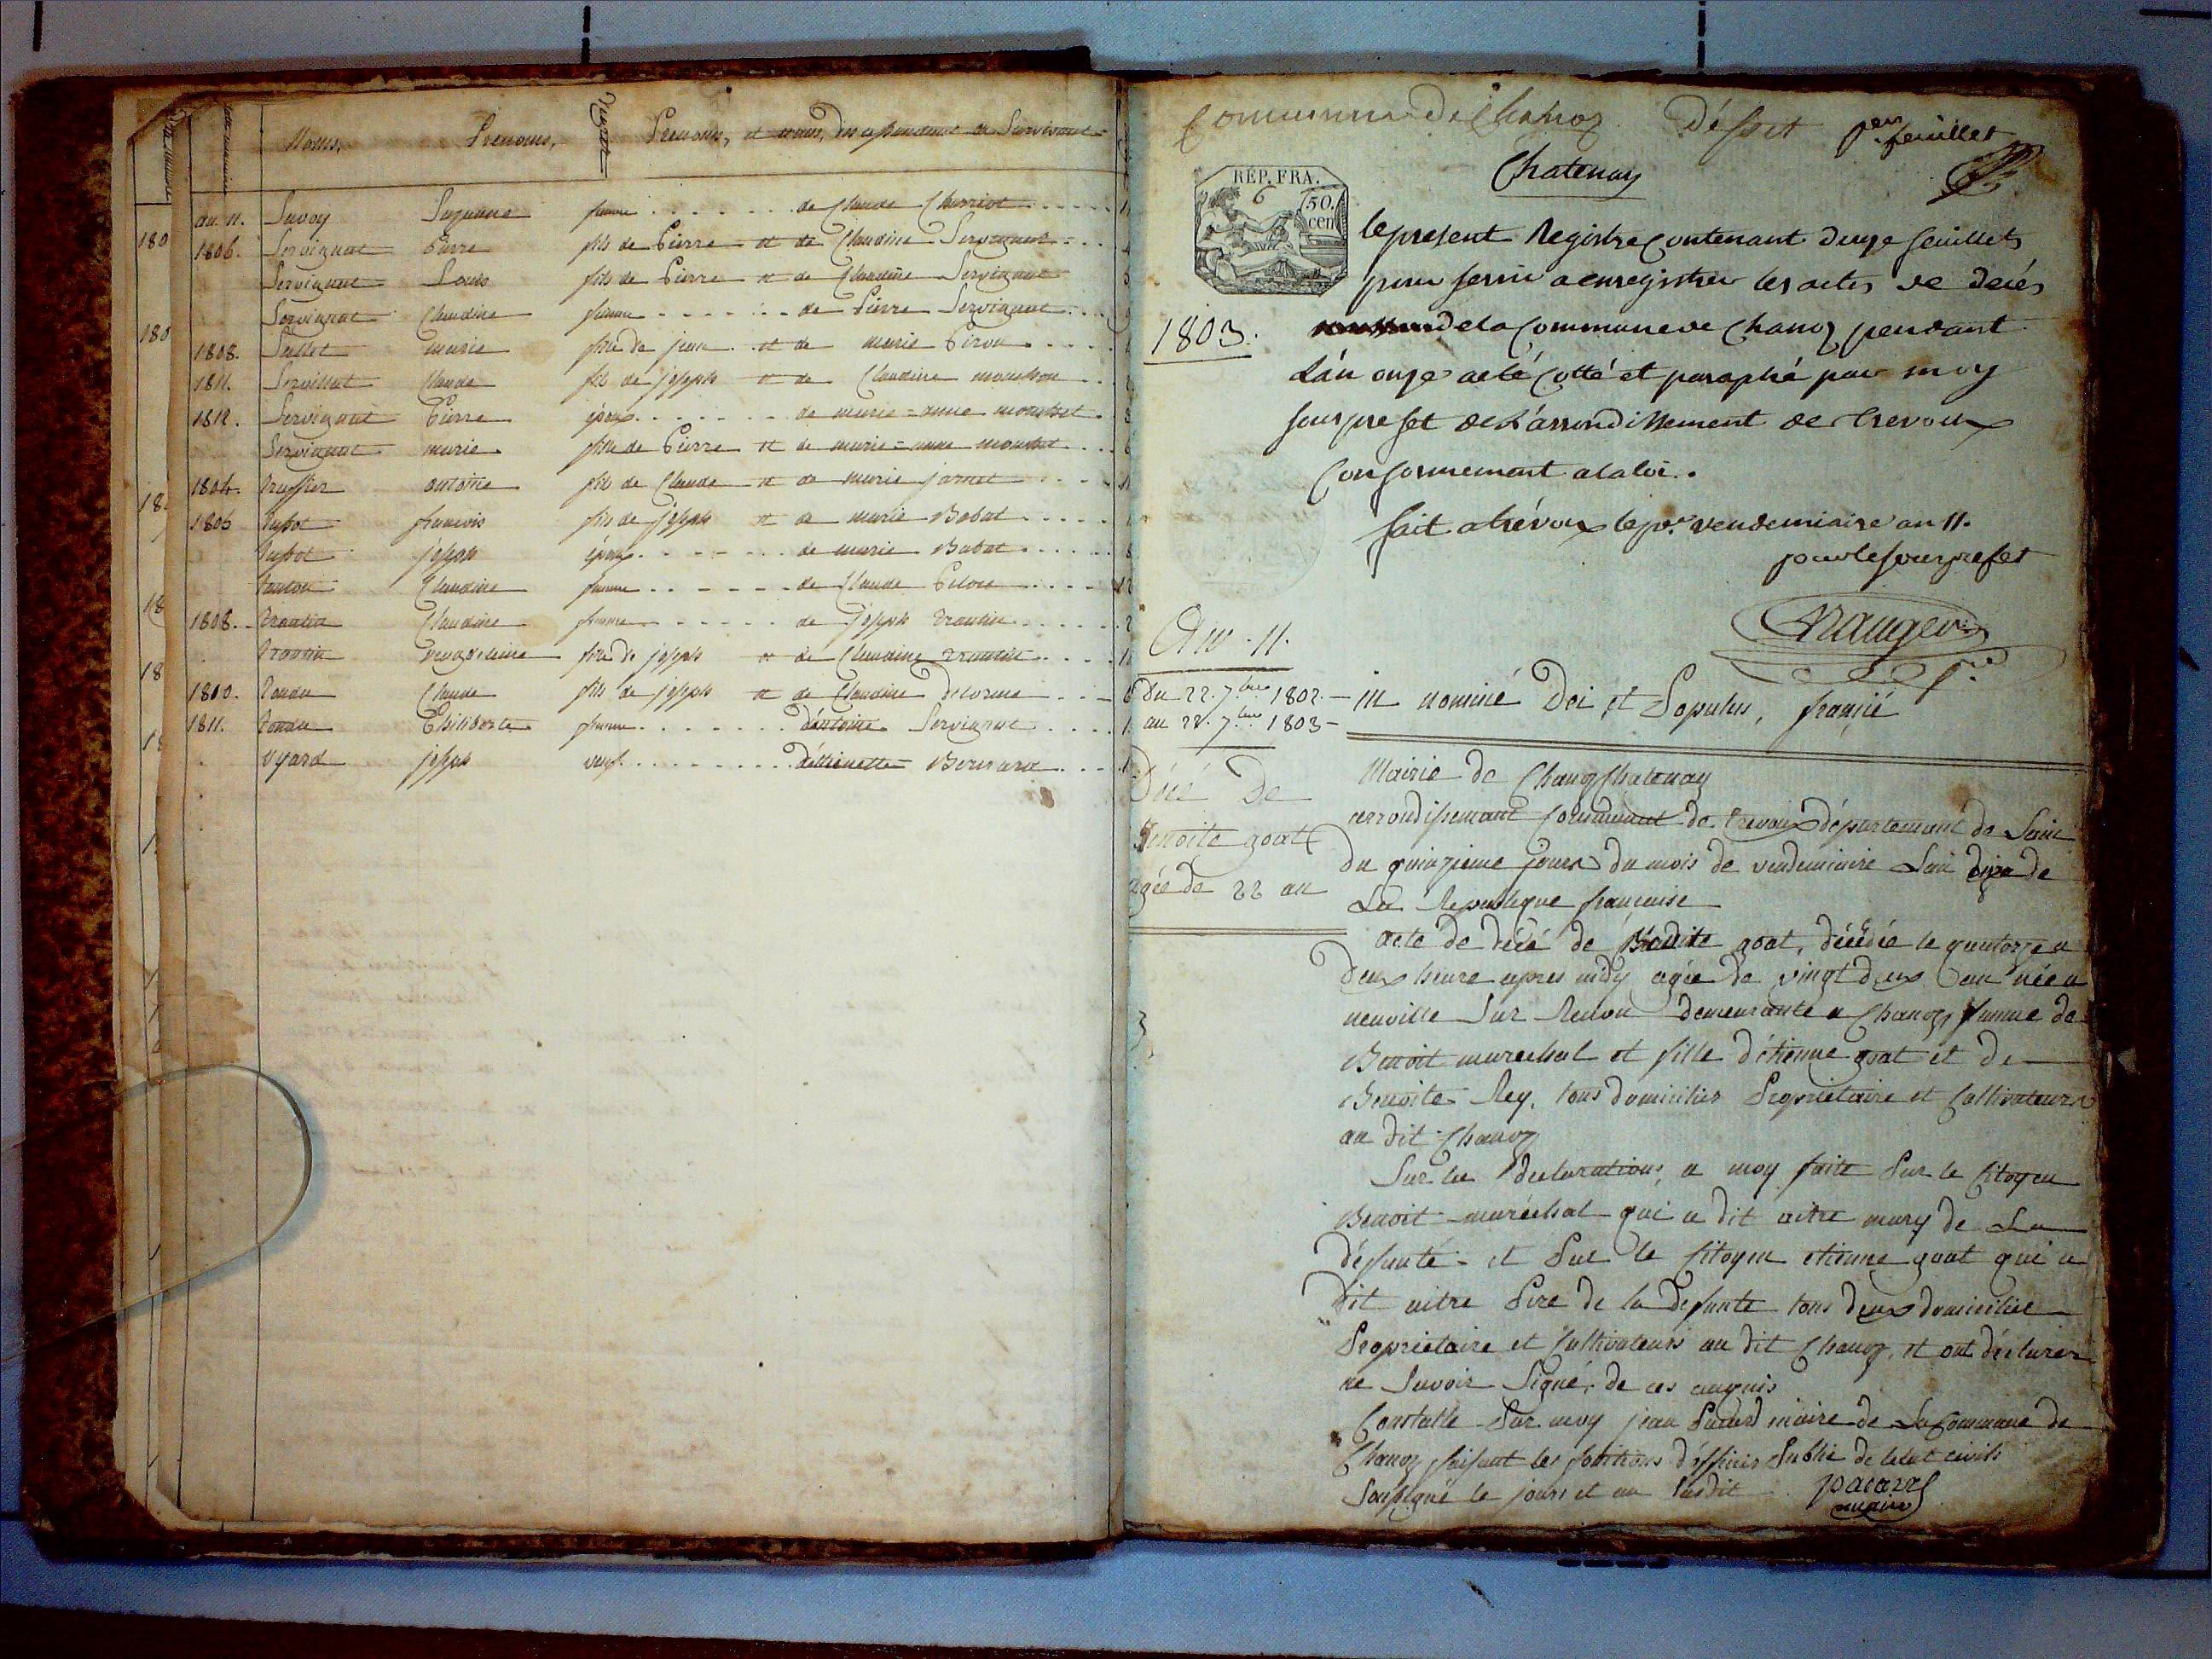 Noms, Prenoms, Prenoms, et noms, des ascendant ou Survivant
an 11. Savoy Suzanne femme de Claude Charriot
1806. Servignat Pierre fils de Pierre et de Claudine Servignat
Servignat Louis fils de Pierre et de Claudine Servignat
Servignat Claudine femme de Pierre Servignat
1808. Sallet marie fille de jean et de marie
1811. Servillat Claude fils de joseph et de Claudine
1812. Servignat Pierre époux de marie-anne
Servignat marie fille de Pierre et de marie-anne
1804. antoine fils de Claude et de marie
1806 françois fils de joseph et de marie Babat
joseph époux de marie Babat
Claudine femme de Claude
1808. Claudine femme de joseph
magdelaine fille de joseph et de Claudine
1810. Claude fils de joseph et de Claudine Delorme
1811. Philiberte femme d'antoine Servignat
Uyard joseph veuf d'ettiennette Bernard
Commune De Chanoz Désset per feuillet
Chatenay
RÉP. FRA.
50. cen
le present Registre Contenant douze feuillets
pour servir a enregistrer les actes de decés
1803. de la Commune de Chanoz pendant
L'án onze a eté Cotté et paraphé par moy
sous prefet de L'arrondissement de Trevoux
Conformement a la loi.
fait a trévoux le per vendemiaire an 11.
pour le sous prefet
An 11.
Du 22. 7bre 1802.
au 22. 7bre 1803
in nominé Dei et Populus, françié
Décé De
Benoite goat
agée de 22 an
Mairie de Chanoz Chatenay
arrondissemant Communal de Trevoux département de Lain
du quinzieme jours du mois de vendemiaire Lan onze de
La Republique francaise
acte de décé de Benoite goat, décédée le quatorze a
deux heure apres midy agée de vingt deux an née a
neuville Sur Renon demeurante a Chanoz, femme de
Benoit marechal et fille d'étienne goat et de
Benoite Rey, tous domicilies Proprietaire et Cultivateurs
au dit Chanoz
Sur la declarations, a moy faite Par le Citoyen
Benoit maréchal qui a dit aitre mary de La
défunte et Par le Citoyen etienne goat qui a
dit aitre Pere de la defunte tous deux domicilié
Proprietaire et Cultivateurs au dit Chanoz, et ont déclarer
ne Savoir Signé, de ces anquis
Constatté Par moy jean Pacard maire de La Commune de
Chanoz faisant les fonctions d'officier Public de letat civils
Soussigné le jours et an Susdit Pacard
maire